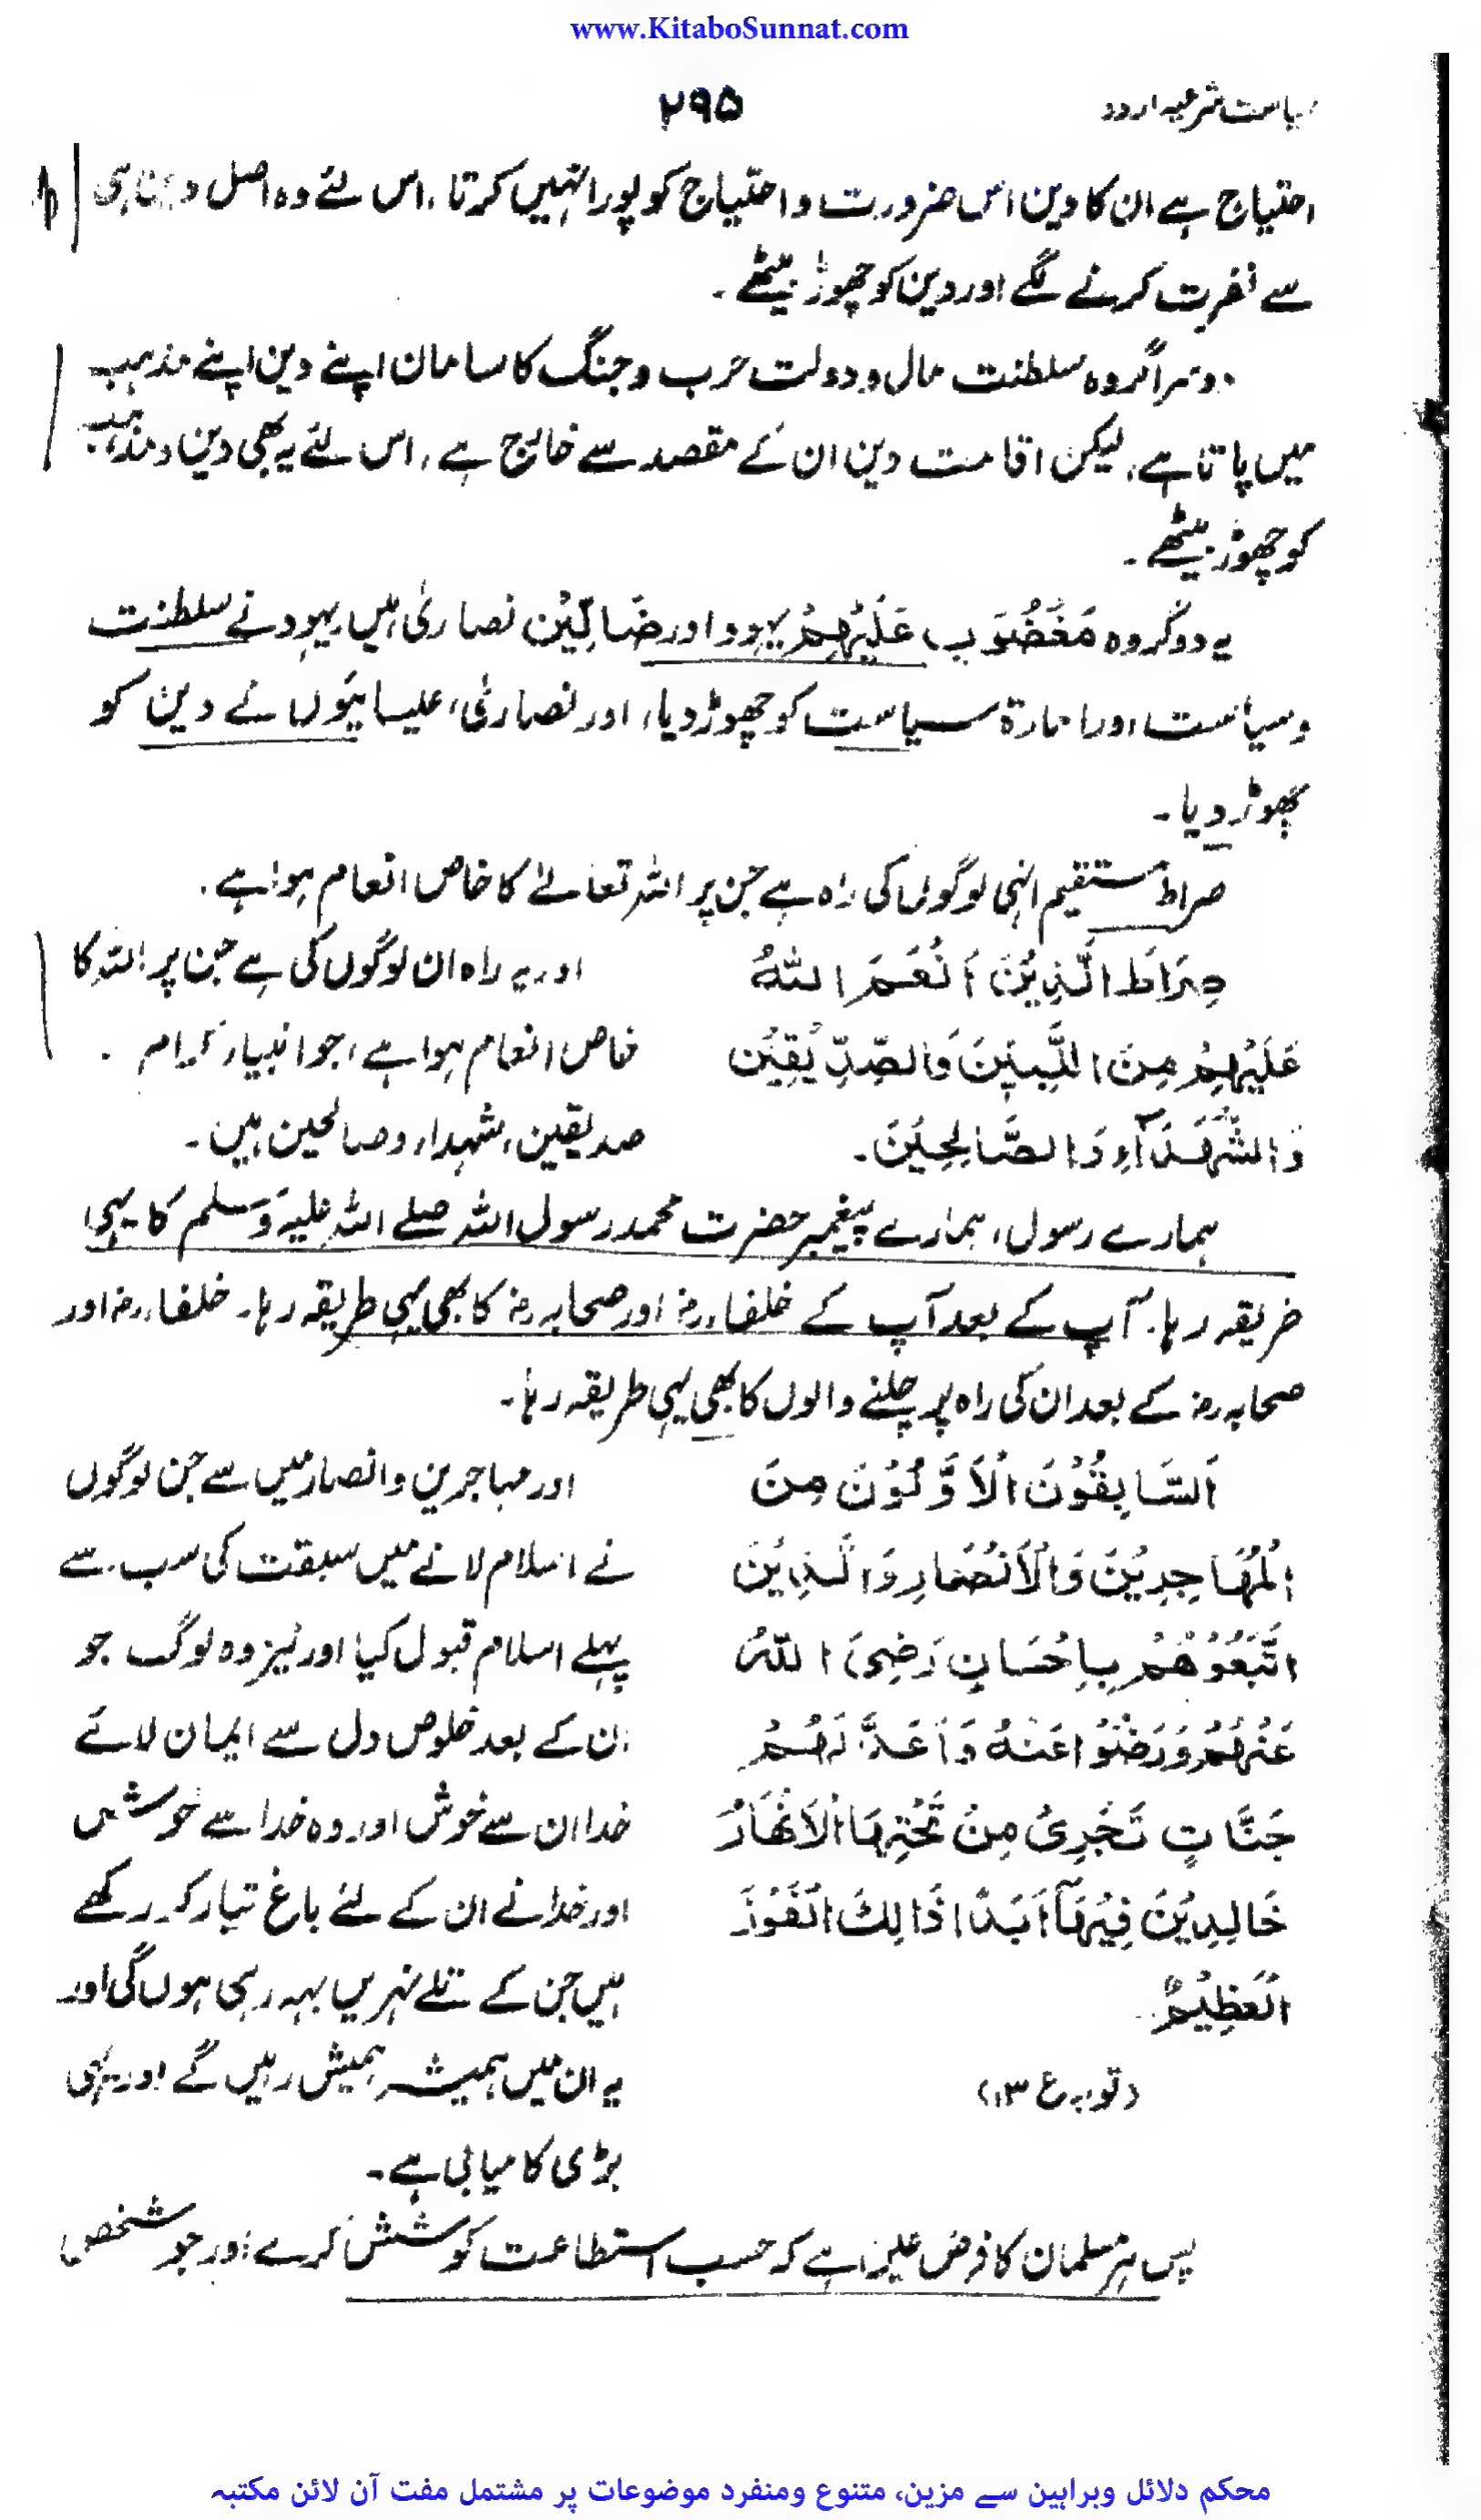 www.KitaboSunnat.com
سیاست شرعیہ اردو
۲۹۵
احتیاج ہے ان کا دین اس ضرورت و احتیاج کو پورا نہیں کرتا، اس لئے وہ اصل دین ہی
سے نفرت کرنے لگے اور دین کو چھوڑ بیٹھے۔
دوسرا گروہ سلطنت مال و دولت حرب و جنگ کا سامان اپنے دین اپنے مذہب
میں پاتا ہے، لیکن اقامت دین ان کے مقصد سے خارج ہے، اس لئے یہ بھی دین و مذہب
کو چھوڑ بیٹھے۔
یہ دو گروہ مَغْضُوبِ عَلَیْہِمْ یہود اور ضَالِّیْن نصاریٰ ہیں یہود نے سلطنت
و سیاست اور امارۃ سیاست کو چھوڑ دیا، اور نصاریٰ، عیسائیوں نے دین کو
چھوڑ دیا۔
صراط مستقیم انہی لوگوں کی راہ ہے جن پر اللہ تعالےٰ کا خاص انعام ہوا ہے۔
صِرَاطَ الَّذِیْنَ اَنْعَمَ اللہُ
عَلَیْہِمْ مِنَ النَّبِیّٖنَ وَالصِّدِّیْقِیْن
وَالشُّہَدَآءِ وَالصَّالِحِیْنَ۔
اور یہ راہ ان لوگوں کی ہے جن پر اللہ کا
خاص انعام ہوا ہے، جو انبیاء کرام،
صدیقین، شہداء و صالحین ہیں۔
ہمارے رسول، ہمارے پیغمبر حضرت محمد رسول اللہ صلے اللہ علیہ وسلم کا یہی
طریقہ رہا۔ آپ کے بعد آپ کے خلفاء رض اور صحابہ رض کا بھی یہی طریقہ رہا۔ خلفاء رض اور
صحابہ رض کے بعد ان کی راہ پر چلنے والوں کا بھی یہی طریقہ رہا۔
اَلسَّابِقُوْنَ الْاَوَّلُوْنَ مِنَ
الْمُہَاجِرِیْنَ وَالْاَنْصَارِ وَالَّذِیْنَ
اتَّبَعُوْھُمْ بِاِحْسَانٍ رَضِیَ اللہُ
عَنْہُمْ وَرَضُوْا عَنْہُ وَاَعَدَّ لَہُمْ
جَنَّاتٍ تَجْرِیْ مِنْ تَحْتِہَا الْاَنْھَارُ
خَالِدِیْنَ فِیْہَآ اَبَدًا ذَالِکَ الْفَوْزُ
الْعَظِیْمُ
(توبہ ع ۱۳)
اور مہاجرین و انصار میں سے جن لوگوں
نے اسلام لانے میں سبقت کی سب سے
پہلے اسلام قبول کیا اور نیز وہ لوگ جو
ان کے بعد خلوص دل سے ایمان لائے
خدا ان سے خوش اور وہ خدا سے خوش ہیں
اور خدا نے ان کے لئے باغ تیار کر رکھے
ہیں جن کے تلے نہریں بہہ رہی ہوں گی اور
یہ ان میں ہمیشہ ہمیش رہیں گے اور یہی
بڑی کامیابی ہے۔
پس ہر مسلمان کا فرض عین ہے کہ حسب استطاعت کوشش کرے اور جو شخص
محکم دلائل وبراہین سے مزین، متنوع ومنفرد موضوعات پر مشتمل مفت آن لائن مکتبہ